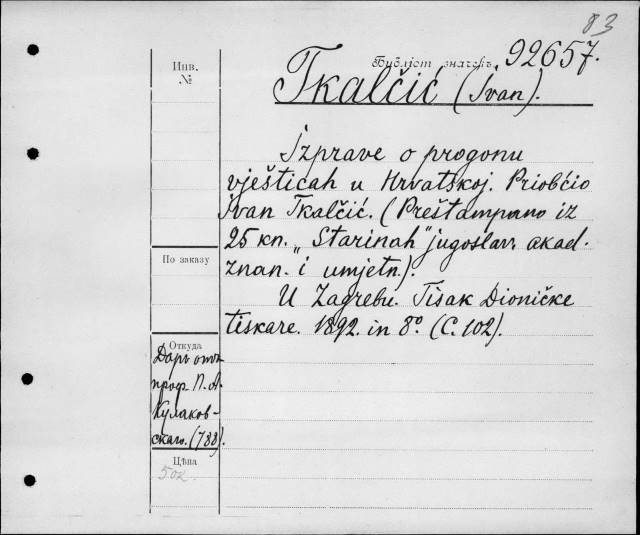 83
Инв. №
Библіот. значекъ. 92657.
Tkalčić (Ivan).
Izprave o progonu
vješticah u Hrvatskoj. Priobćio
Ivan Tkalčić. (Preštampano iz
25 kn. „Starinah" jugoslav. akad.
znan. i umjetn.).
U Zagrebu. Tisak Dioničke
tiskare. 1892. in 8º. (C. 102).
По заказу
Откуда
Даръ отъ
проф. П. А.
Кулаков-
скаго. (788).
Цѣна
50к.